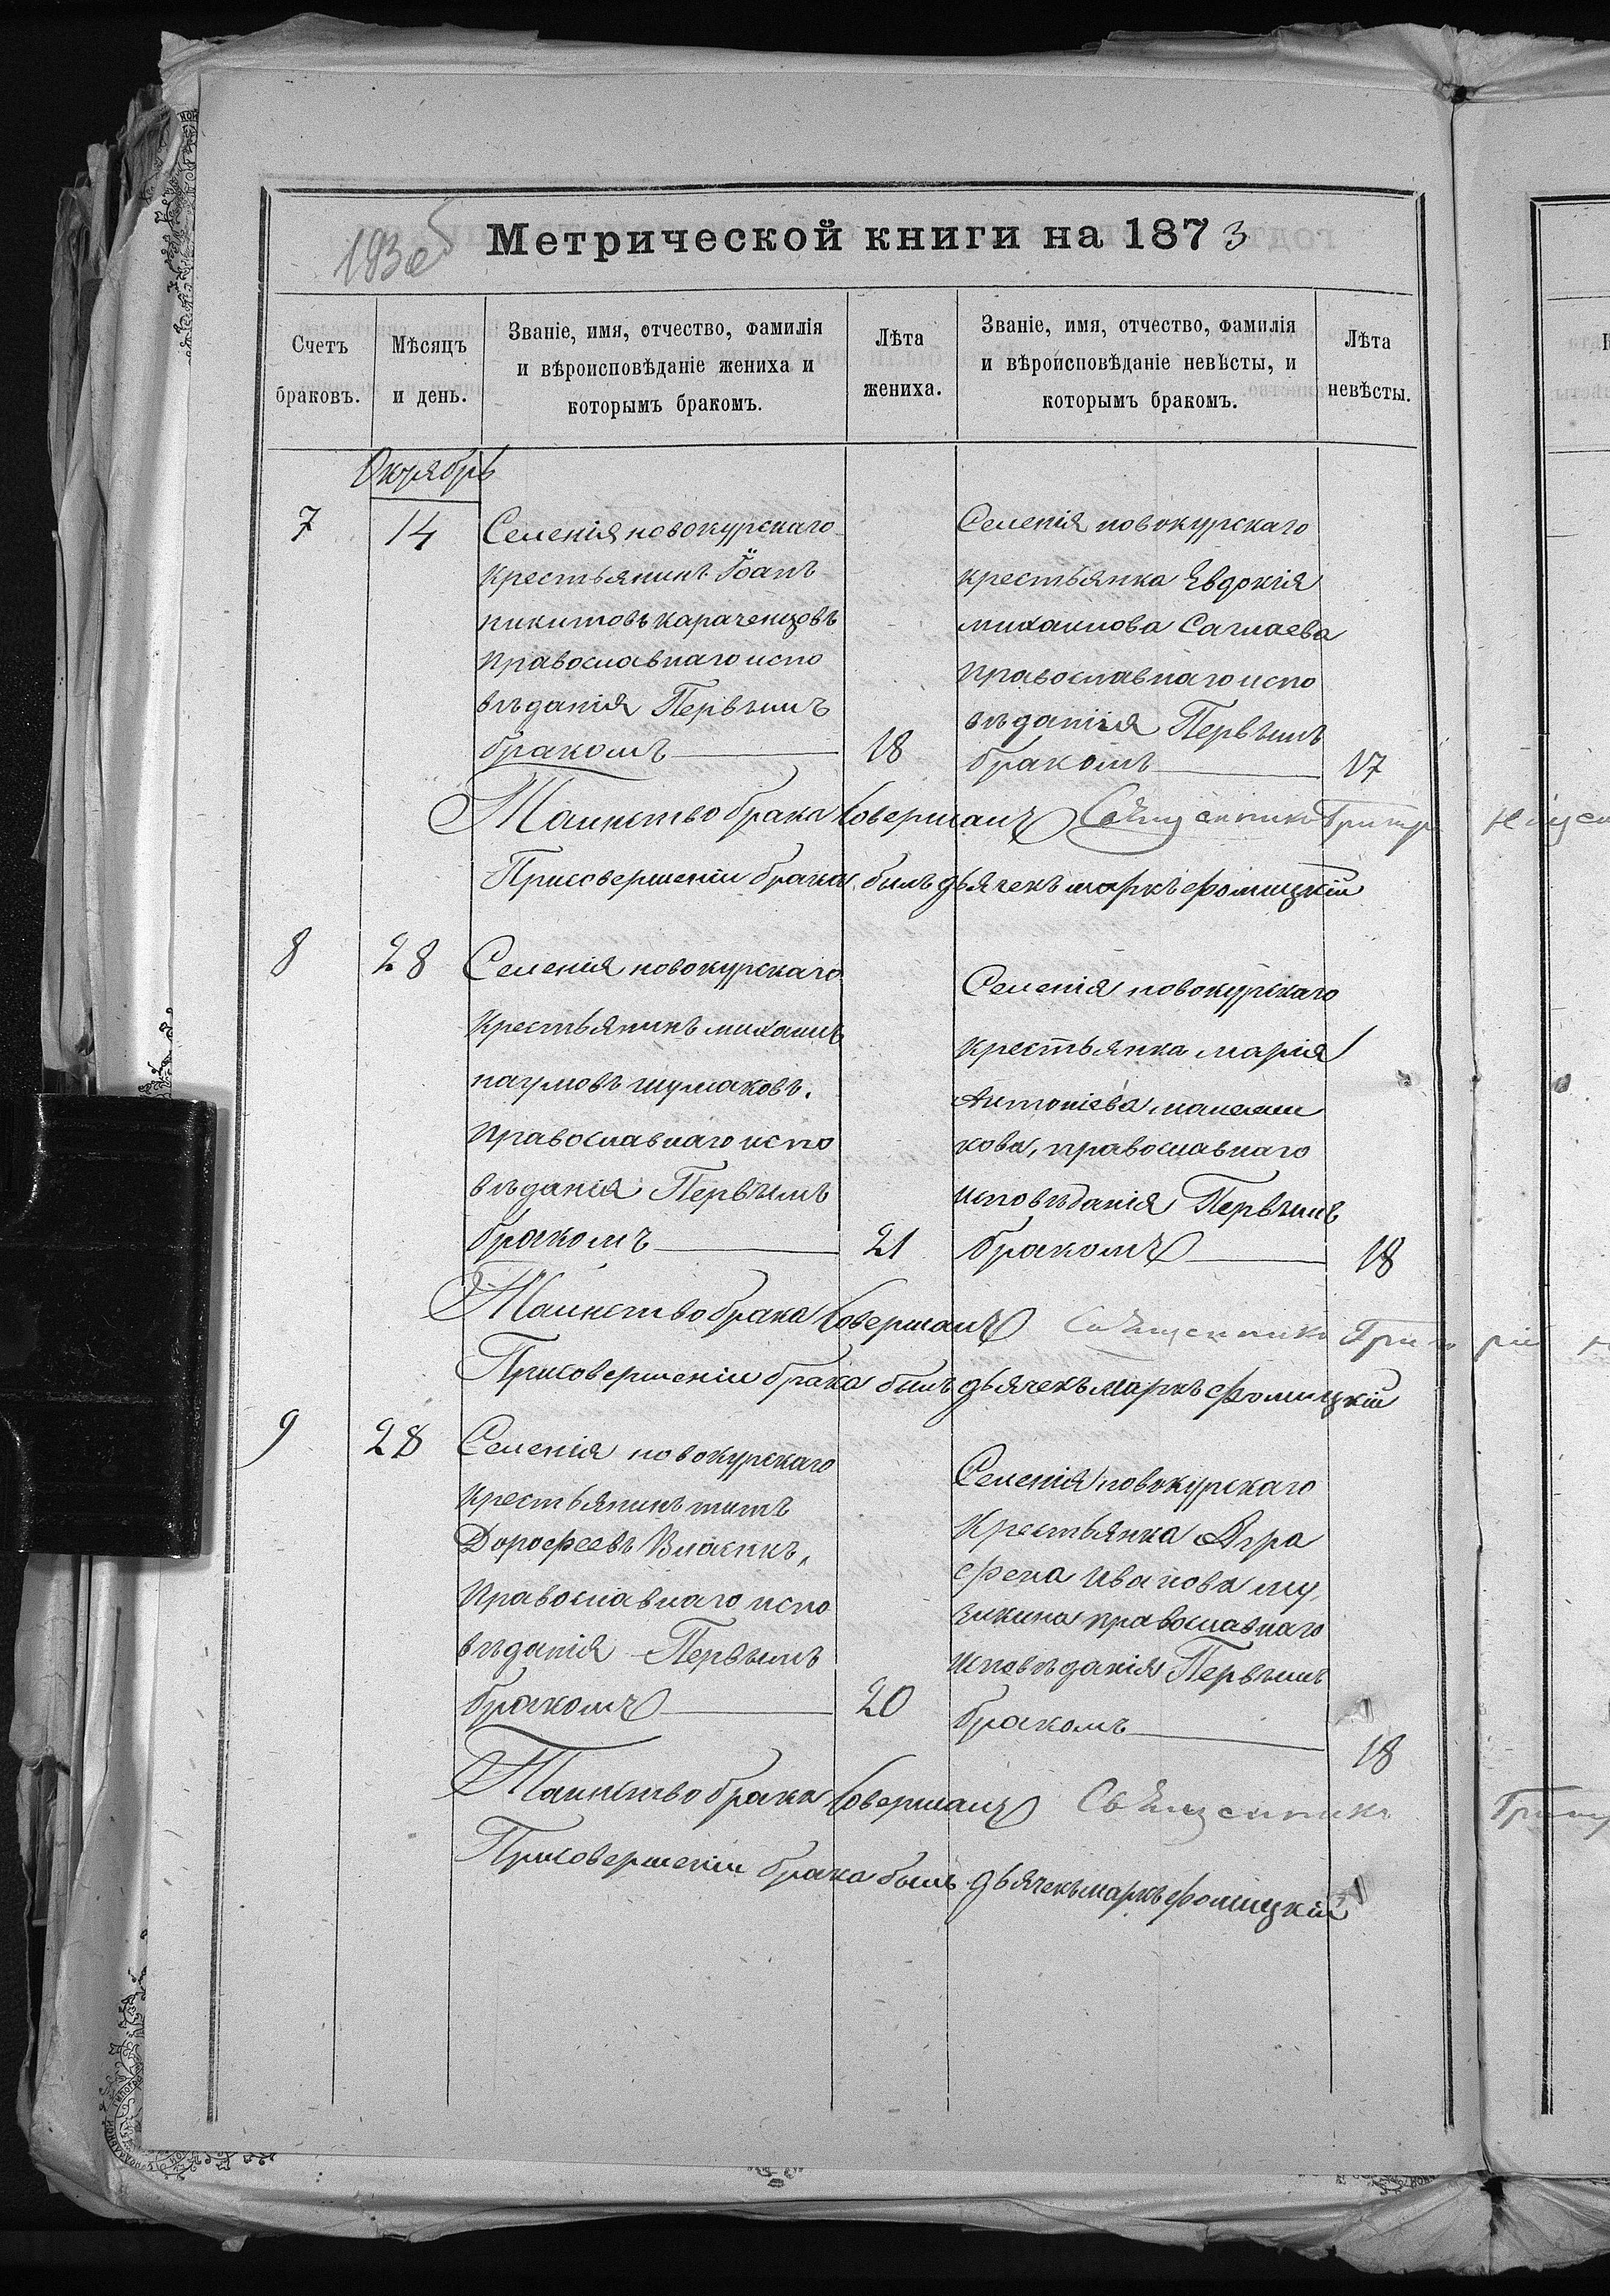 193 об
Метрической книги на 1873
Счетъ браковъ.
Мѣсяцъ и день.
Званіе, имя, отчество, фамилія
и вѣроисповѣданіе жениха и
которымъ бракомъ.
Лѣта
жениха.
Званіе, имя, отчество, фамилія
и вѣроисповѣданіе невѣсты, и
которымъ бракомъ.
Лѣта
невѣсты.
Октябрь
7
14
Селенія новокурскаго
крестьянинъ Іоанъ
никитовъ караченцовъ
Православнаго испо
вѣданія Первымъ
бракомъ
18
Селенія новокурскаго
крестьянка Евдокія
михаилова
Православнаго испо
вѣданія Первымъ
бракомъ
17
Таинство брака Совершалъ Священникъ
Присовершеніи брака былъ дьячекъ маркъ фомицкій
8
28
Селенія новокурскаго
Крестьянинъ михаилъ
наумовъ шумаковъ.
Православнаго испо
вѣданія Первымъ
бракомъ
21
Селенія новокурскаго
крестьянка марія
Антоніева
кова, православнаго
исповѣданія Первымъ
бракомъ
18
Таинство брака Совершалъ Священникъ Григорій
Присовершеніи брака былъ дьячекъ маркъ фомицкій
9
28
Селенія новокурскаго
Крестьянинъ титъ
Дорофеевъ
Православнаго испо
вѣданія Первымъ
бракомъ
20
Селенія новокурскаго
Крестьянка Агра
фена Иванова му
православнаго
исповѣданія Первымъ
бракомъ
18
Таинство брака Совершалъ Священникъ
Присовершеніи брака былъ дьячекъ маркъ фомицкій